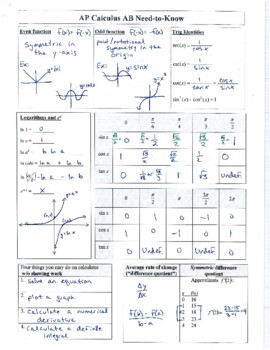 AP Calculus AB Need-to-Know
Even function f(x) = f(-x)
Symmetric in
the y-axis
Ex:
Odd function f(-x) = -f(x)
point/rotational
symmetry in the
origin
Ex:
y=sinx
Trig Identities
sec(x) =
1
cosx
csc(x) =
1
sinx
cot(x) =
1
tanx
=
cosx
sinx
sin²(x) + cos²(x) = 1
Logarithms and eˣ
ln 1 = 0
ln e = 1
ln aᵇ = b ln a
ln (ab) = ln a + ln b
ln (a/b) = ln a - ln b
0 π/6 π/4 π/3 π/2
sin x
cos x 1 √3/2 √2/2 1/2 0
tan x 0 1 √3 undef.
0 π/2 π 3π/2 2π
sin x 0 1 0 -1 0
cos x 1 0 -1 0 1
tan x 0 Undef. 0 Undef. 0
Four things you may do on calculator
w/o showing work
1. Solve an equation
2. plot a graph
3. Calculate a numerical
derivative
4. Calculate a definite
integral
Average rate of change
("difference quotient")
Δy
Δx
f(b) - f(a)
b-a
Symmetric difference
quotient
Approximate f'(3):
x f(x)